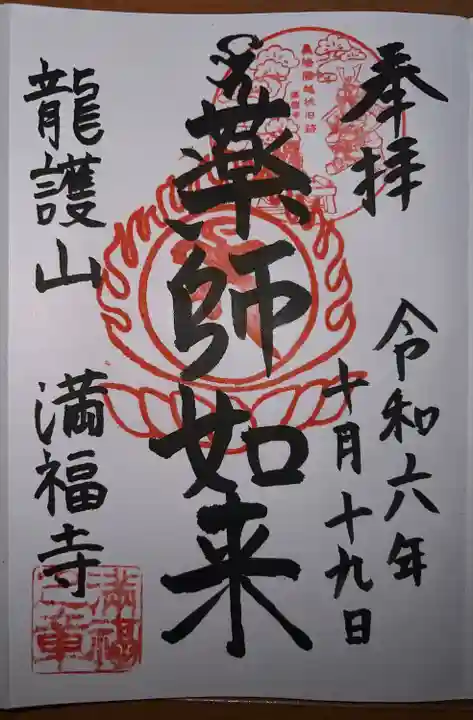 奉拝
令和六年
十月十九日
薬師如来
龍護山 満福寺